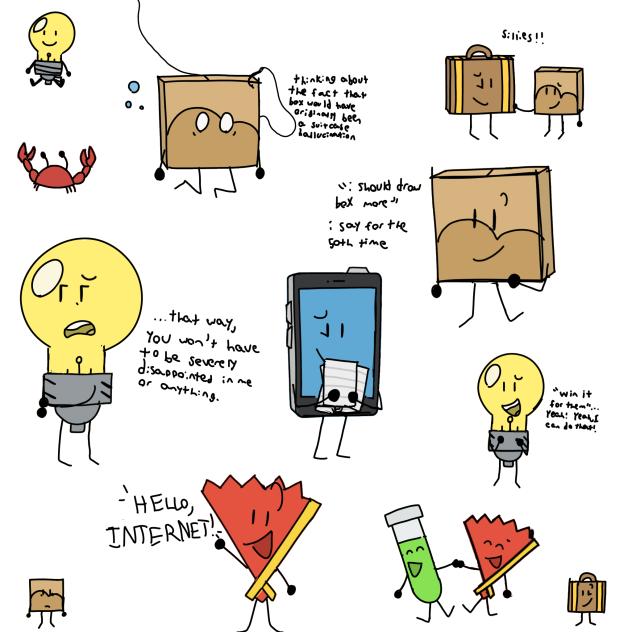 thinking about
the fact that
box would have
originally been
a suitcase
hallucination
sillies!!
"i should draw
box more"
i say for the
50th time
...that way,
you won't have
to be severely
disappointed in me
or anything.
"win it
for them"...
yeah! yeah, I
can do that!
"HELLO,
INTERNET!"